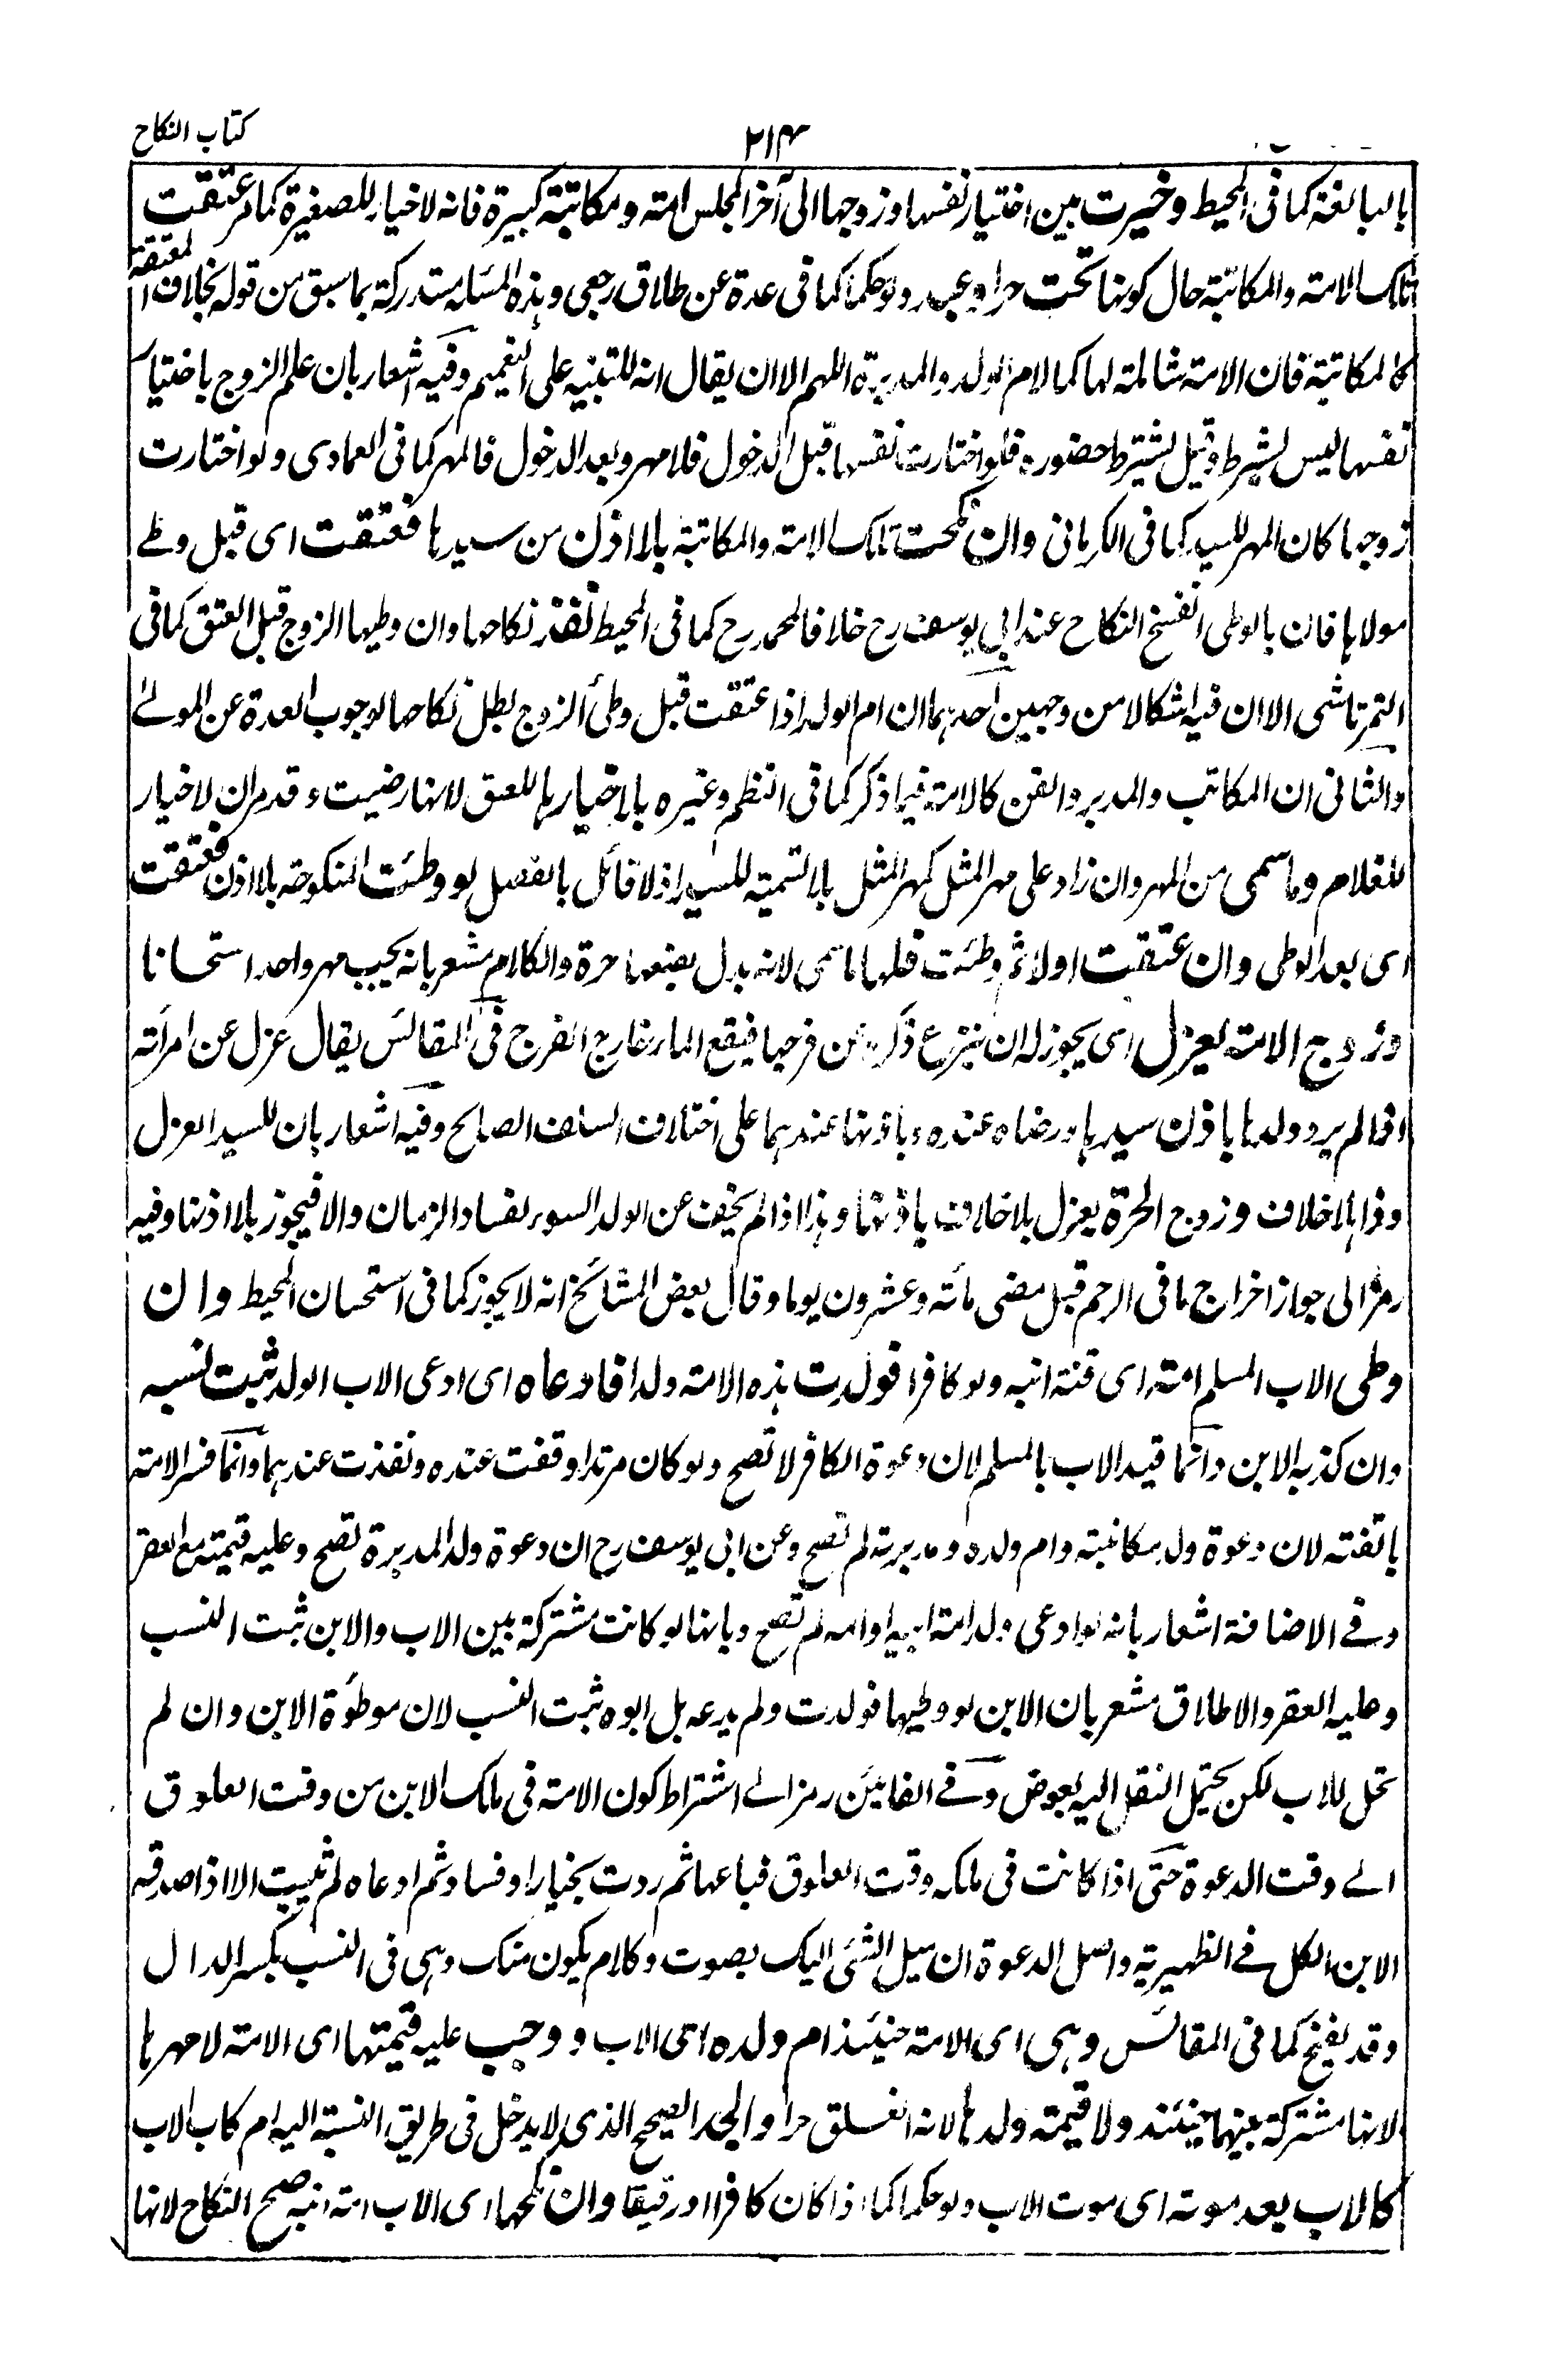 كتاب النكاح
۲۱۴
بالبالغة كما فى المحيط وخيرت بين اختيار نفسها وزوجها الى آخر المجلس امة ومكاتبة كبيرة فانه لا خيار للصغيرة كما مر عتقت
تلك الامة والمكاتبة حال كونها تحت حر او عبد ولو حكما كما فى عدة عن طلاق رجعى وهذه المسئلة مستدركة بما سبق من قوله بخلاف المعتقة
كالمكاتبة فان الامة شاملة لها كما لام الولد والمدبرة اللهم الا ان يقال انه للتنبيه على التعميم وفيه اشعار بان علم الزوج باختيار
نفسها ليس بشرط وقيل يشترط حضوره فلو اختارت نفسها قبل الدخول فلا مهر وبعد الدخول فالمهر كما فى العمادى ولو اختارت
زوجها كان المهر للسيد كما فى الكرمانى وان نكحت تلك الامة والمكاتبة بلا اذن من سيدها فعتقت اى قبل وطى
مولاها فان بالوطى انفسخ النكاح عند ابى يوسف رح خلافا لمحمد رح كما فى المحيط نفذ نكاحها وان وطيها الزوج قبل العتق كما فى
التمرتاشى الا ان فيه اشكالا من وجهين احدهما ان ام الولد اذا عتقت قبل وطئ الزوج بطل نكاحها لوجوب العدة عن المولى
والثانى ان المكاتب والمدبر والقن كالامة فيما ذكر كما فى النظم وغيره بلا خيار لها للعتق لانها رضيت وقد مر ان لا خيار
للغلام وما سمى من المهر وان زاد على مهر المثل كمهر المثل بلا تسمية للسيد اذ لا قائل بالفصل لو وطئت المنكوحة بلا اذن فعتقت
اى بعد الوطى وان عتقت اولا ثم وطئت فلها ما سمى لانه بدل بضعها حرة والكلام مشعر بانه يجب مهر واحد استحسانا
وزوج الامة يعزل اى يجوز له ان ينزع ذكره عن فرجها فيقع الماء خارج الفرج فى المقائس يقال عزل عن امرأته
اذا لم يرد ولدها باذن سيدها ورضاه عنده وباذنها عندهما على اختلاف السلف الصالح وفيه اشعار بان للسيد العزل
وذا بلا خلاف وزوج الحرة يعزل بلا خلاف باذنها وهذا اذا لم يخف عن الولد السوء لفساد الزمان والا فيجوز بلا اذنها وفيه
رمز الى جواز اخراج ما فى الرحم قبل مضى مأته وعشرون يوما وقال بعض المشائخ انه لا يجوز كما فى استحسان المحيط وان
وطى الاب المسلم امة اى قنة ابنه ولو كافرا فولدت هذه الامة ولدا فادعاه اى ادعى الاب الولد ثبت نسبه
وان كذبه الابن وانما قيد الاب بالمسلم لان دعوة الكافر لا تصح ولو كان مرتدا وقفت عنده ونفذت عندهما وانما فسر الامة
بالقنة لان دعوة ولد مكاتبته وام ولده ومدبرته لم تصح وعن ابى يوسف رح ان دعوة ولد المدبرة تصح وعليه قيمته مع العقر
وفى الاضافة اشعار بانه لو ادعى ولد امة ابيه او امه لم تصح وبانها لو كانت مشتركة بين الاب والابن ثبت النسب
وعليه العقر والاطلاق مشعر بان الابن لو وطيها فولدت ولم يدعه بل ابوه ثبت النسب لان موطؤة الابن وان لم
تحل للاب لكن يحتمل النقل اليه بعوض وفى الفائين رمز الى اشتراط كون الامة فى ملك الابن من وقت العلوق
الى وقت الدعوة حتى اذا كانت فى ملكه وقت العلوق فباعها ثم ردت بخيار او فساد ثم ادعاه لم يثبت الا اذا صدقه
الابن الكل فى الظهيرية واصل الدعوة ان يميل الشئ اليك بصوت وكلام يكون منك وهى فى النسب بكسر الدال
وقد يفتح كما فى المقائس وهى اى الامة حينئذ ام ولده اى الاب ووجب عليه قيمتها اى الامة لا مهرها
لانها مشتركة بينهما حينئذ ولا قيمة ولدها لانه انعلق حرا والجد الصحيح الذى لا يدخل فى طريق النسبة اليه ام كاب الاب
كالاب بعد موته اى موت الاب ولو حكما كما اذا كان كافرا او رقيقا وان نكحها اى الاب امة ابنه صح النكاح لانها